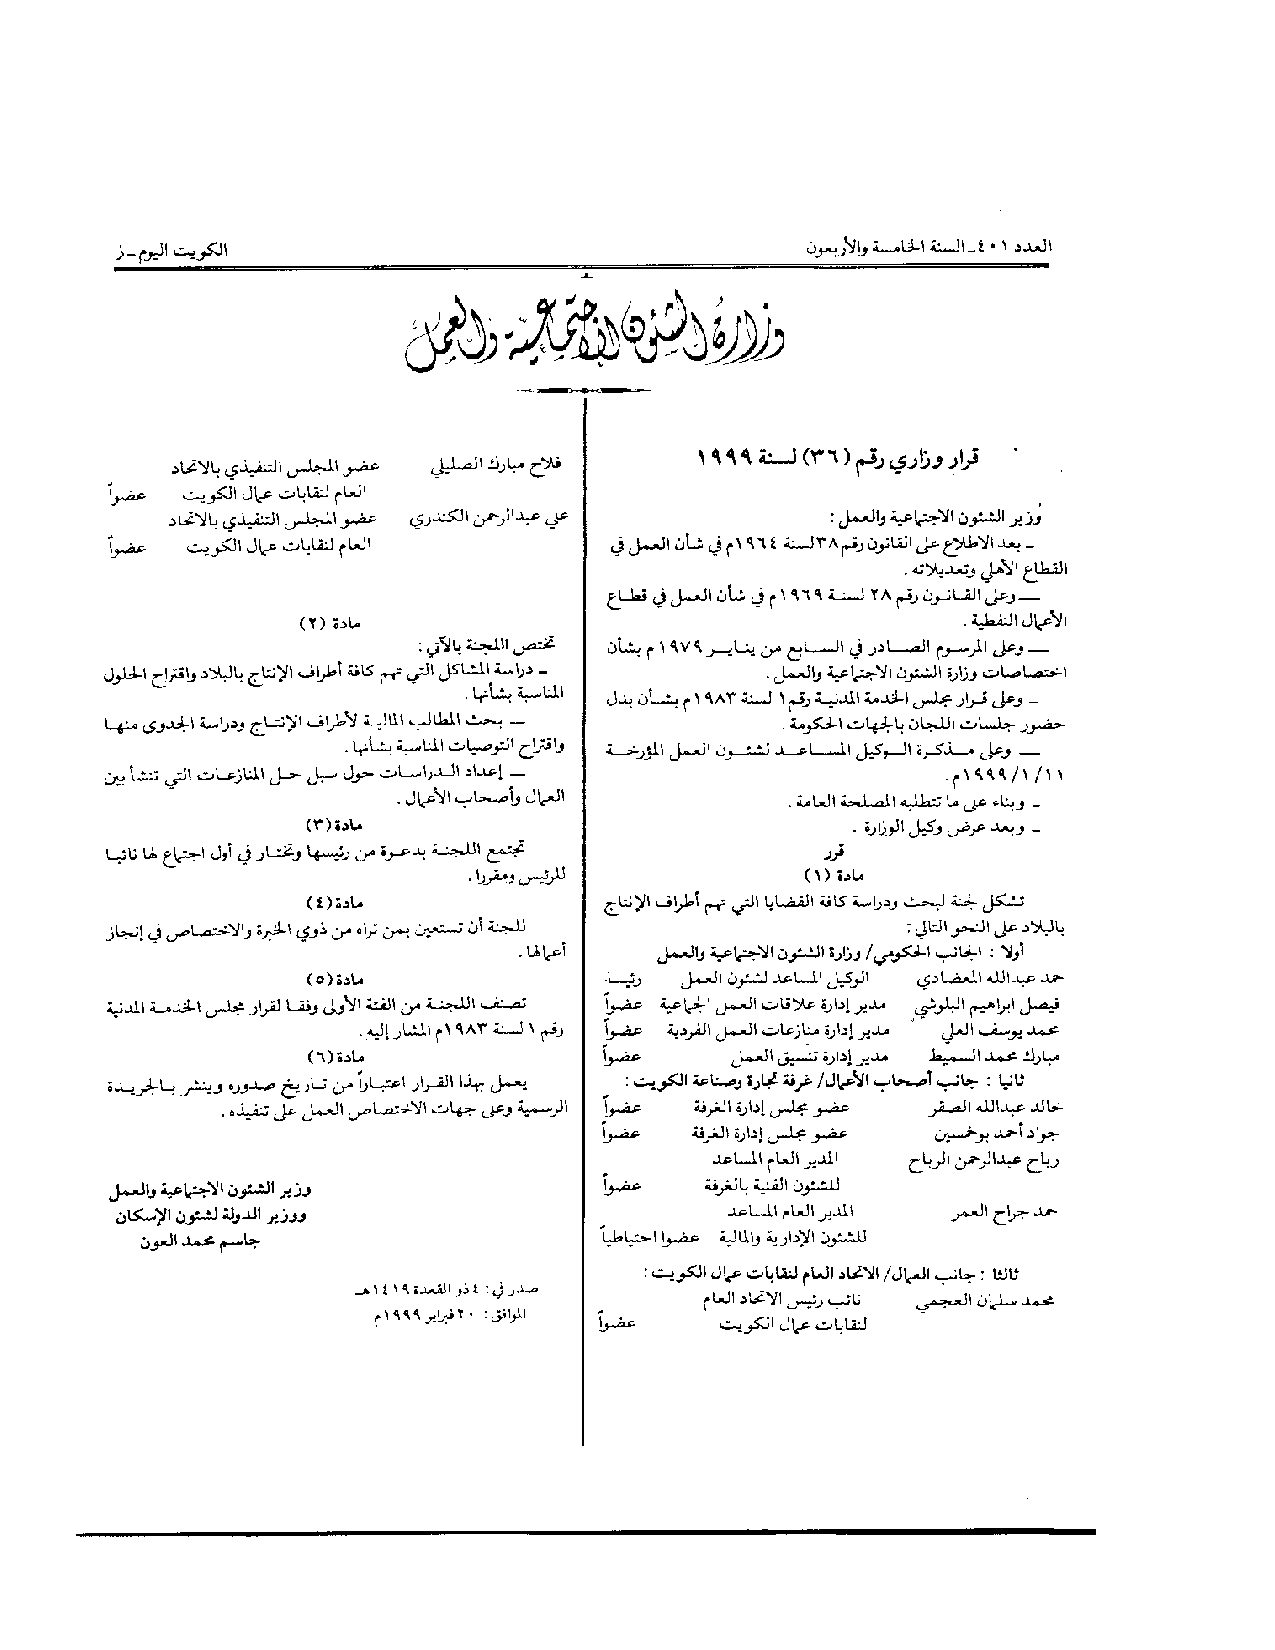 العدد ٤٠١ - السنة الخامسة والأربعون
الكويت اليوم - ز
وزارة الشئون الاجتماعية والعمل
قرار وزاري رقم (٣٦) لسنة ١٩٩٩
وزير الشئون الاجتماعية والعمل :
- بعد الاطلاع على القانون رقم ٣٨ لسنة ١٩٦٤م في شأن العمل في
القطاع الأهلي وتعديلاته .
- وعلى القانون رقم ٢٨ لسنة ١٩٦٩م في شأن العمل في قطاع
الأعمال النفطية .
- وعلى المرسوم الصادر في السابع من يناير ١٩٧٩م بشأن
اختصاصات وزارة الشئون الاجتماعية والعمل .
- وعلى قرار مجلس الخدمة المدنية رقم ١ لسنة ١٩٨٣م بشأن بدل
حضور جلسات اللجان بالجهات الحكومة .
- وعلى مذكرة الوكيل المساعد لشئون العمل المؤرخة
١٩٩٩/١/١١م .
- وبناء على ما تتطلبه المصلحة العامة .
- وبعد عرض وكيل الوزارة .
قرر
مادة (١)
تشكل لجنة لبحث ودراسة كافة القضايا التي تهم أطراف الإنتاج
بالبلاد على النحو التالي :
أولا : الجانب الحكومي/ وزارة الشئون الاجتماعية والعمل
حمد عبدالله المعضادي الوكيل المساعد لشئون العمل
فيصل ابراهيم البلوشي مدير إدارة علاقات العمل الجماعية عضواً
محمد يوسف العلي مدير إدارة منازعات العمل الفردية عضواً
مبارك محمد السميط مدير إدارة تنسيق العمل عضواً
ثانيا : جانب أصحاب الأعمال/ غرفة تجارة وصناعة الكويت :
خالد عبدالله الصقر عضو مجلس إدارة الغرفة عضواً
جواد أحمد بوخمسين عضو مجلس إدارة الغرفة عضواً
رباح عبدالرحمن الرباح المدير العام المساعد
للشئون الفنية بالغرفة عضواً
حمد جراح العمر المدير العام المساعد
للشئون الإدارية والمالية عضوا احتياطياً
ثالثا : جانب العمال/ الاتحاد العام لنقابات عمال الكويت :
محمد سلمان العجمي نائب رئيس الاتحاد العام
لنقابات عمال الكويت عضواً
فلاح مبارك الصليلي عضو المجلس التنفيذي بالاتحاد
العام لنقابات عمال الكويت عضواً
علي عبدالرحمن الكندري عضو المجلس التنفيذي بالاتحاد
العام لنقابات عمال الكويت عضواً
مادة (٢)
تختص اللجنة بالآتي :
- دراسة المشاكل التي تهم كافة أطراف الإنتاج بالبلاد واقتراح الحلول
المناسبة بشأنها .
- بحث المطالب المالية لأطراف الإنتاج ودراسة الجدوى منها
واقتراح التوصيات المناسبة بشأنها .
- إعداد الدراسات حول سبل حل المنازعات التي تنشأ بين
العمال وأصحاب الأعمال .
مادة (٣)
تجتمع اللجنة بدعوة من رئيسها وتختار في أول اجتماع لها نائبا
للرئيس ومقررا .
مادة (٤)
للجنة أن تستعين بمن تراه من ذوي الخبرة والاختصاص في إنجاز
أعمالها .
مادة (٥)
تصنف اللجنة من الفئة الأولى وفقا لقرار مجلس الخدمة المدنية
رقم ١ لسنة ١٩٨٣م المشار إليه .
مادة (٦)
يعمل بهذا القرار اعتباراً من تاريخ صدوره وينشر بالجريدة
الرسمية وعلى جهات الاختصاص العمل على تنفيذه .
وزير الشئون الاجتماعية والعمل
ووزير الدولة لشئون الإسكان
جاسم محمد العون
صدر في : ٤ ذو القعدة ١٤١٩هـ
الموافق : ٢٠ فبراير ١٩٩٩م